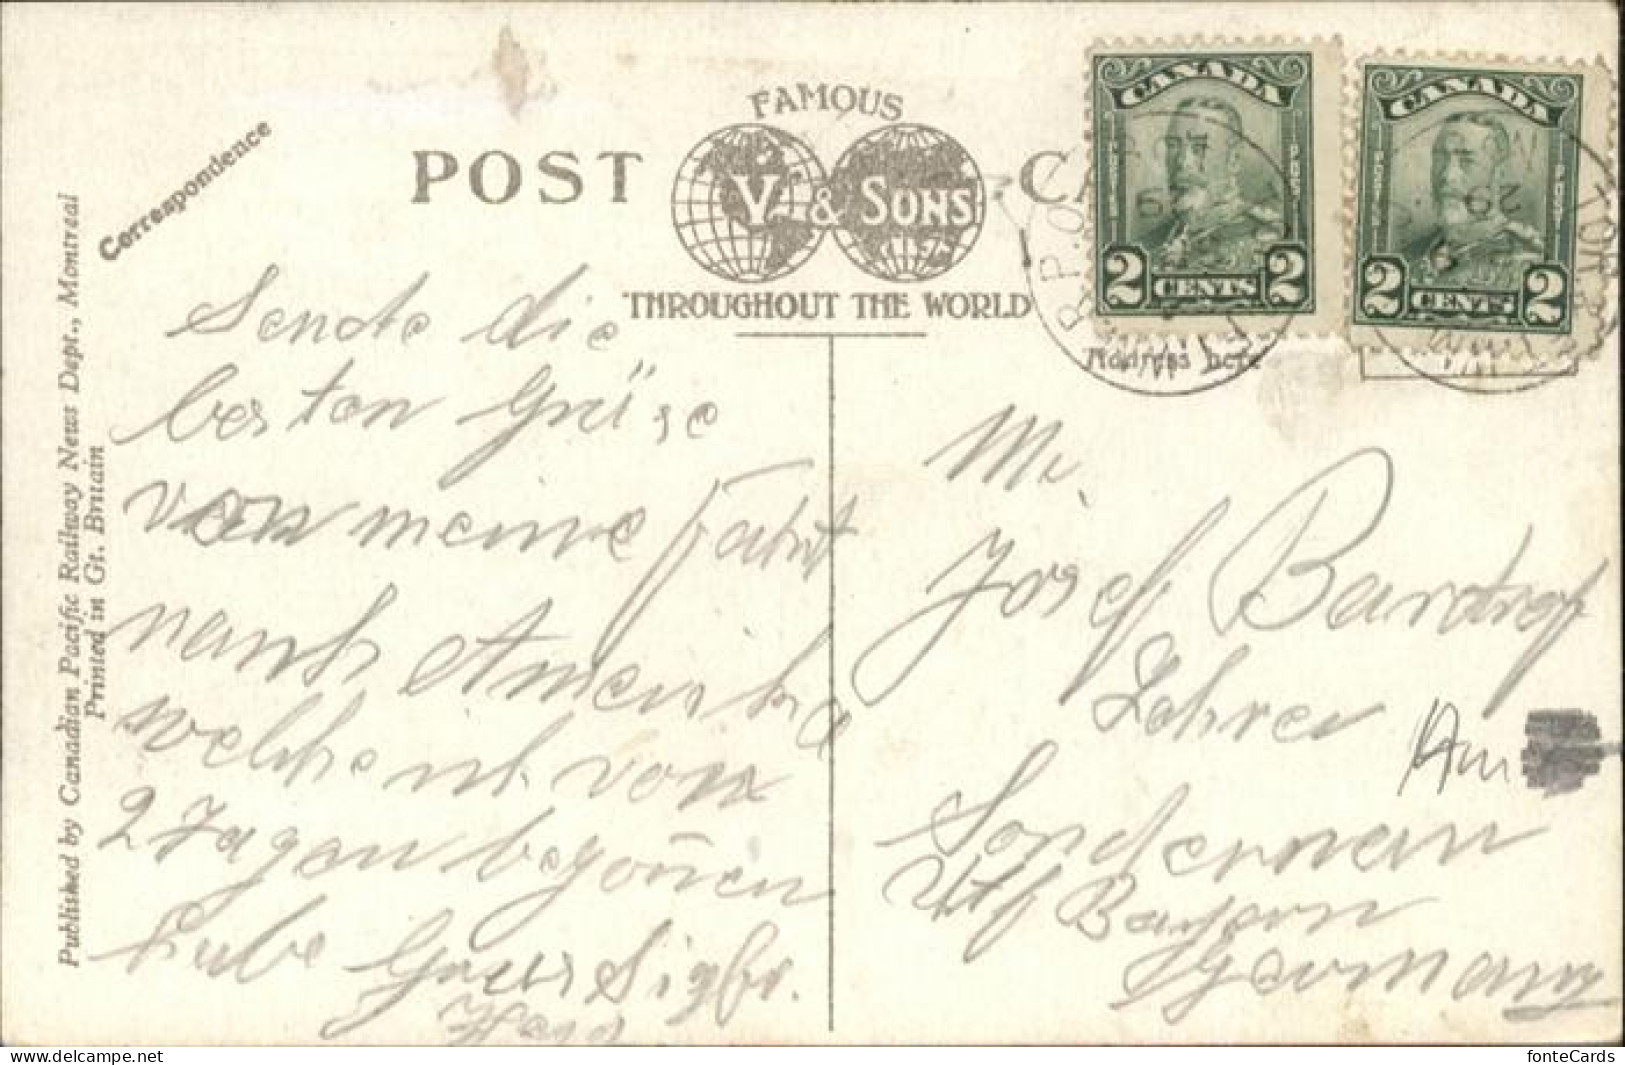 Correspondence
POST CA
FAMOUS
V. & SONS
THROUGHOUT THE WORLD
Address here
CANADA
POSTES POST
2 CENTS 2
CANADA
POSTES POST
2 CENTS 2
R.P.O.
29
29
TOR.
Published by Canadian Pacific Railway News Dept., Montreal
Printed in Gt. Britain
Sende die
besten Grüse
von meine Fahrt
nach Amerika
welche ich vor
2 Tagen begonnen
Liebe Grues Sigfr.
Mr.
Josef
Lehrer
Bayern
Germany
delcampe.net
fonteCards